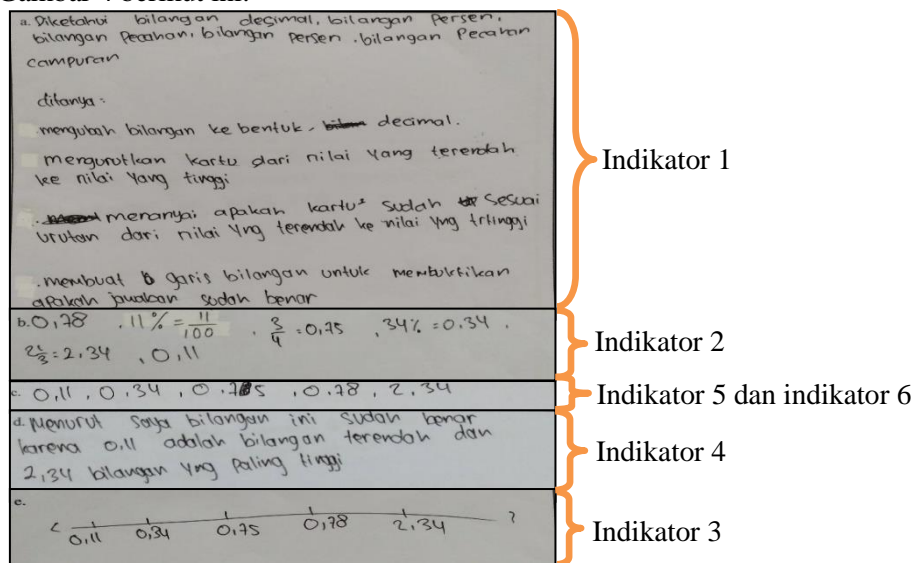 Gambar 4 berikut ini.
a. Diketahui bilangan desimal, bilangan Persen,
bilangan Pecahan, bilangan Persen . bilangan Pecahan
campuran
ditanya :
. mengubah bilangan ke bentuk decimal.
mengurutkan kartu dari nilai yang terendah
ke nilai yang tinggi
. menanyai apakah kartu² sudah Sesuai
urutan dari nilai yng terendah ke nilai yng trtinggi
. membuat garis bilangan untuk membuktikan
apakah jwaban sudah benar
Indikator 1
b. 0,78 . 11% = 11/100 . 3/4 = 0,75 , 34% = 0.34 .
2 1/3 = 2,34 , 0,11
Indikator 2
c. 0,11 , 0.34 , 0.75 , 0.78 , 2,34
Indikator 5 dan indikator 6
d. Menurut saya bilangan ini sudah benar
karena 0,11 adalah bilangan terendah dan
2,34 bilangan yng paling tinggi
Indikator 4
e.
0,11 0,34 0,75 0,78 2,34
Indikator 3